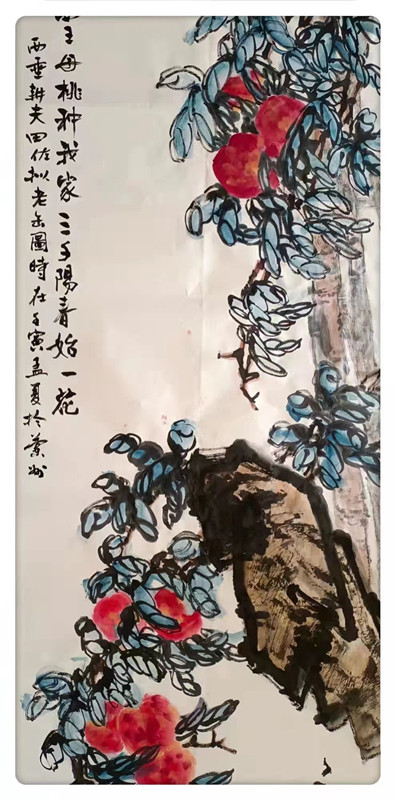 西王母桃种我家三千陽春始一花
西垂耕夫田佐拟老缶圖時在壬寅孟夏於蘭州